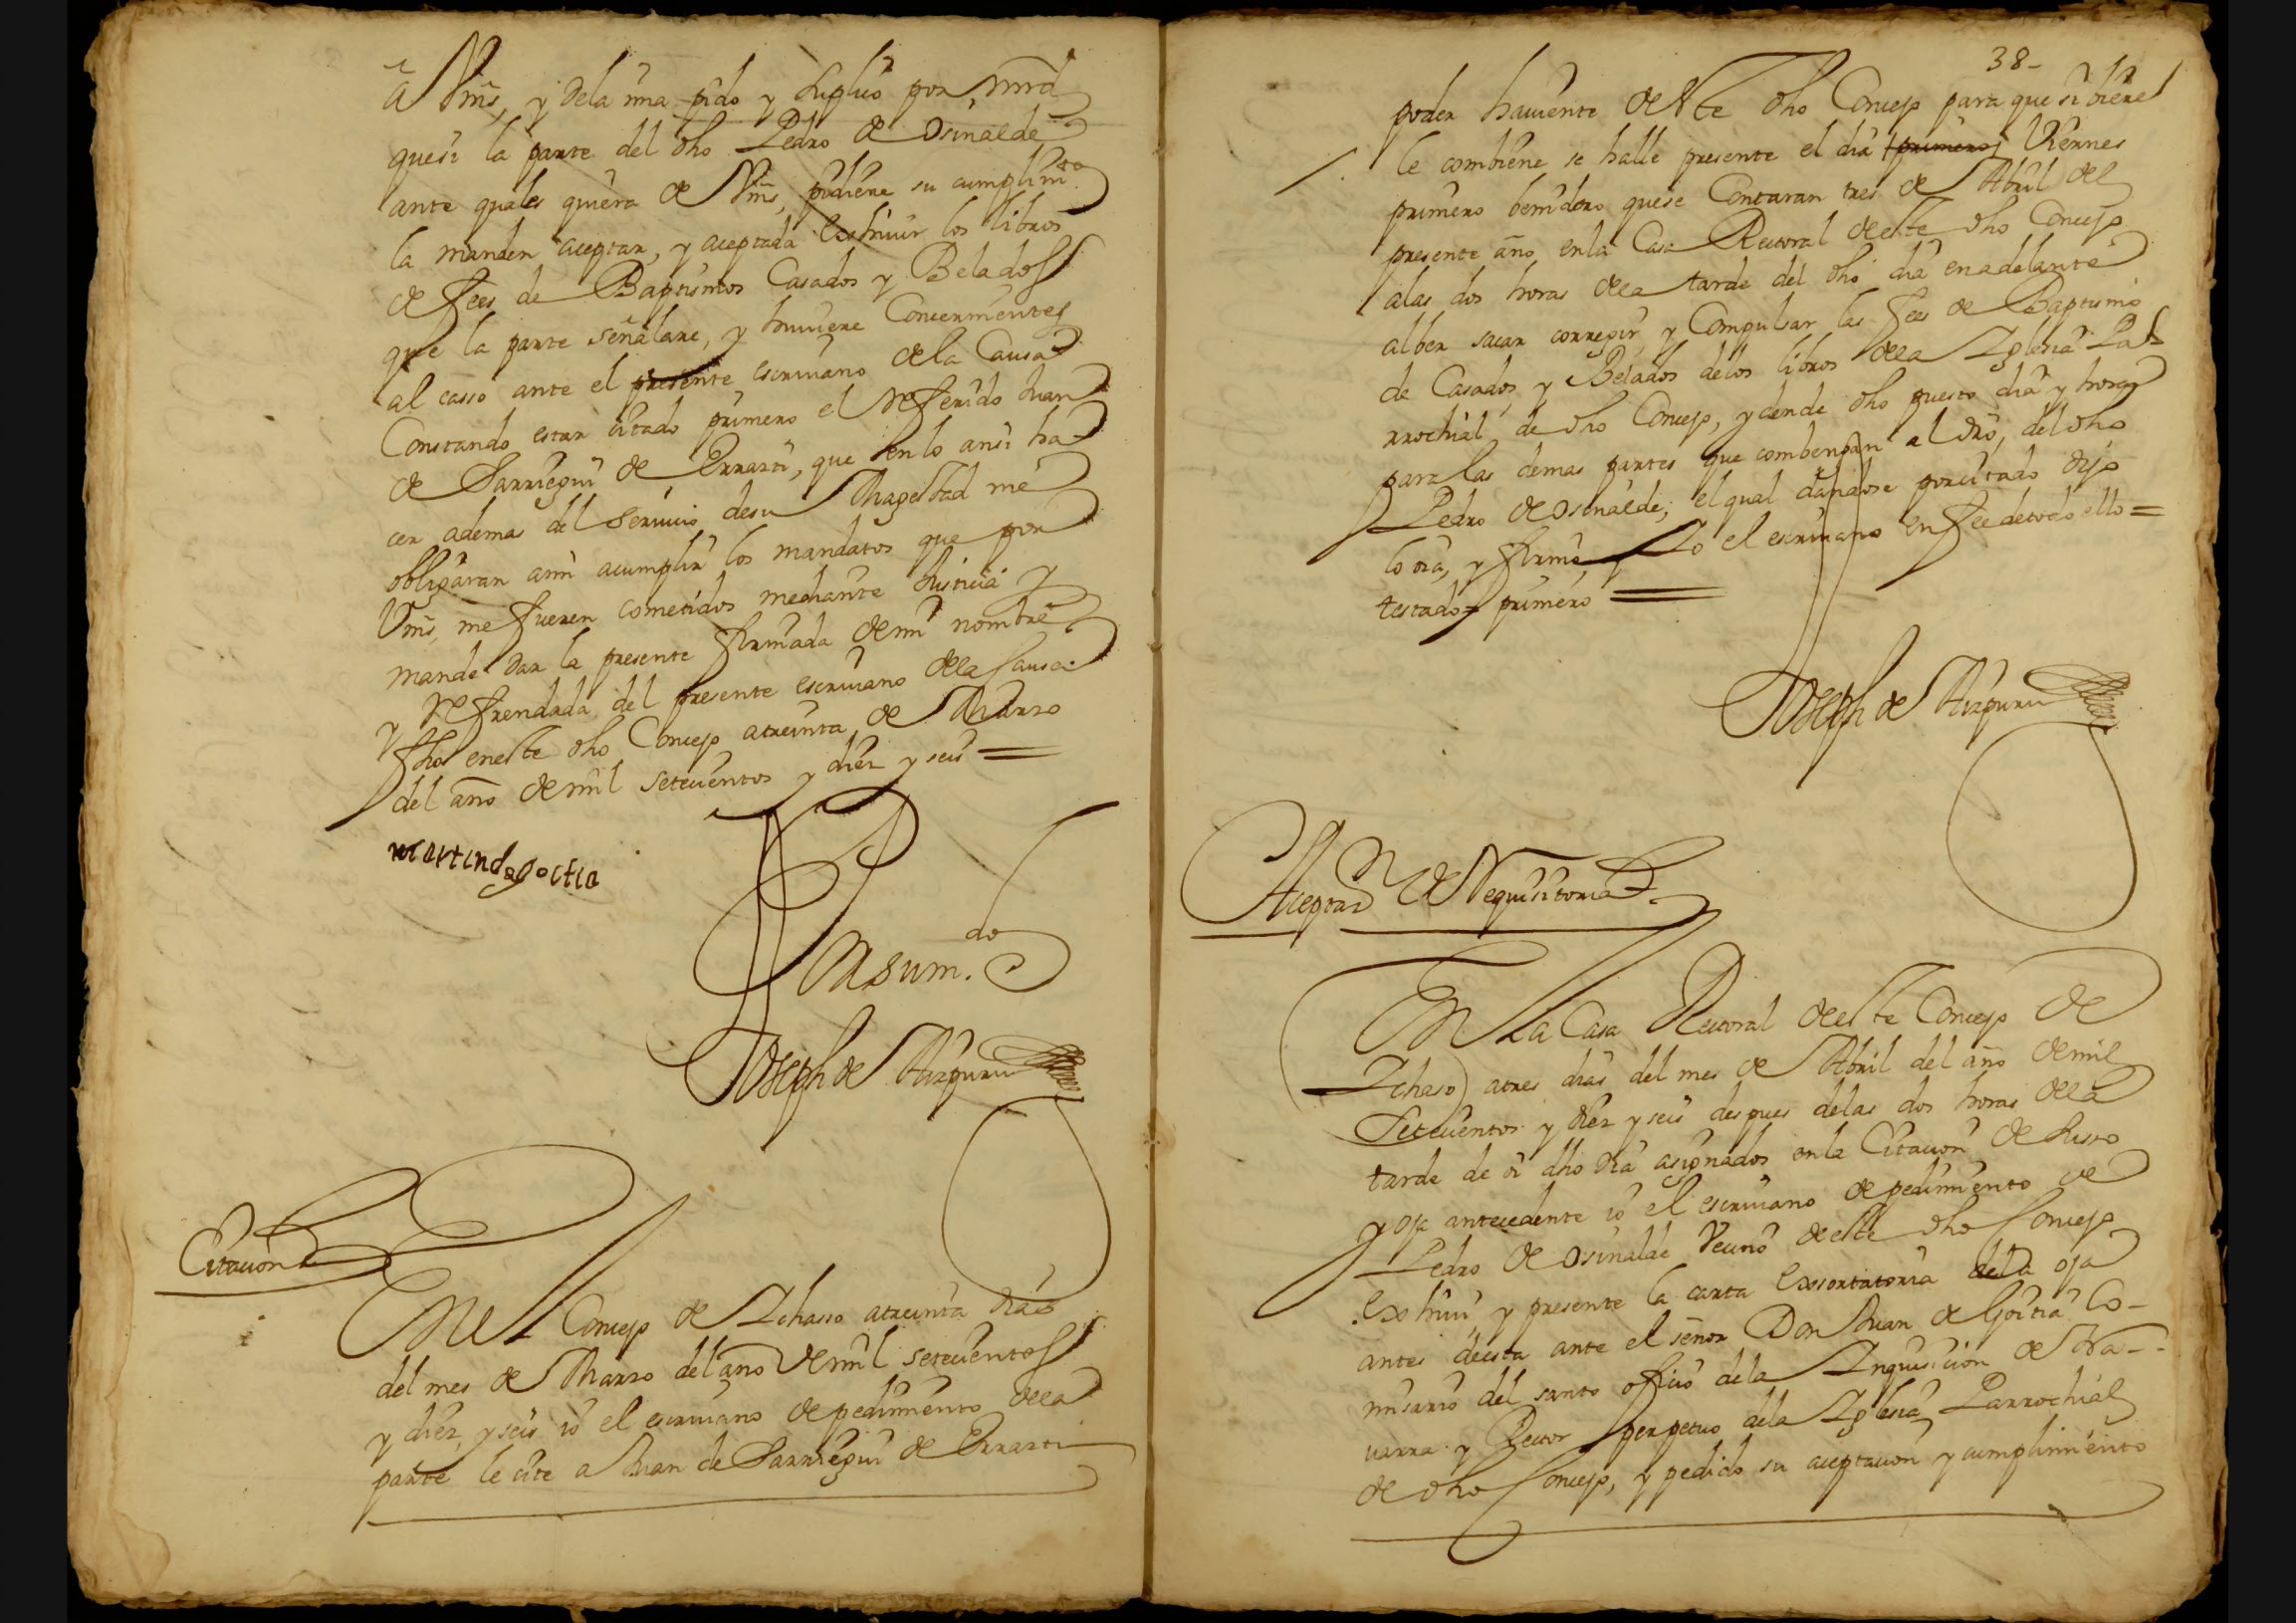 a Vms, y dela mia pido y suplico por mrd
quesi la parte del dho Pedro de Osinalde
ante quales quiera de Vms, pidiere su cumplimto
la manden aceptar, y aceptada Exhivir los libros
de fees de Baptismos Casados y Belados
que la parte señalare, y huviere Concernientes
al casso ante el presente escrivano dela Causa
Constando estar citado primero el referido Juan
de Sarriegui de Errarti, que en lo ansi ha
cer ademas del servicio desu Magestad me
obligaran ami acumplir los mandatos que por
Vms, me fueren cometidos mediante Justicia y
mande dar la presente firmada demi nombre
y refrendada del presente escrivano dela Causa
fho eneste dho Concejo atreinta de Marzo
del año demil setecientos y diez y seis =
martin de goitia
Por su mdo
Joseph de Aizpuru
Citacion
En el Concejo de Ichasso atreinta dias
del mes de Marzo del año demil setecientos
y diez y seis io el escrivano de pedimiento dela
parte le cite a Juan de Sarriegui de Errarti
38-
poder haviente deste dho Concejo para que si biere
le combiene se halle presente el dia primero Viernes
primero benidero quese Contaran tres de Abril del
presente año, enla Casa Rectoral deeste dho Concejo
alas dos horas dela tarde del dho dia enadelante
alber sacar corregir, y Compulsar las fees de Baptismo
de Casados, y Belados delos libros dela Iglesia Pa
rrochial de dho Concejo, y dende dho puesto dia y hora
para las demas partes que combengan al dro, del dho
Pedro de Osinalde; el qual dandose porcitado dijo
lo oia, y firmo, y Io el escrivano en fee detodo ello =
testado = primero =
Joseph de Aizpuru
Aceptaon de Requisitoria
En La Casa Rectoral deeste Concejo de
Ichaso atres dias del mes de Abril del año demil
Setecientos y diez y seis despues delas dos horas dela
tarde de oi dho dia asignados enla Citacion de Suso
y oja antecedente io el escrivano de pedimiento de
Pedro de Osinalde Vecino deeste dho Concejo
Exhivi, y presente la carta Exsortatoria dela oja
antes deesta ante el señor Don Juan de Goitia Co-
misario del santo oficio dela Inquisicion de Na-
varra y Rector perpetuo dela Iglesia Parrochial
de dho Concejo, y pedido su aceptacion y cumplimiento